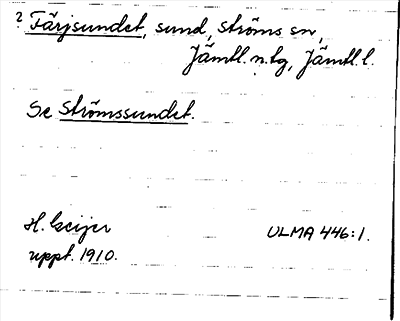 ? Färjsundet, sund, Ströms sn,
Jämtl. n. tg, Jämtl. l.
Se Strömssundet.
H. Geijer ULMA 446:1.
uppt. 1910.